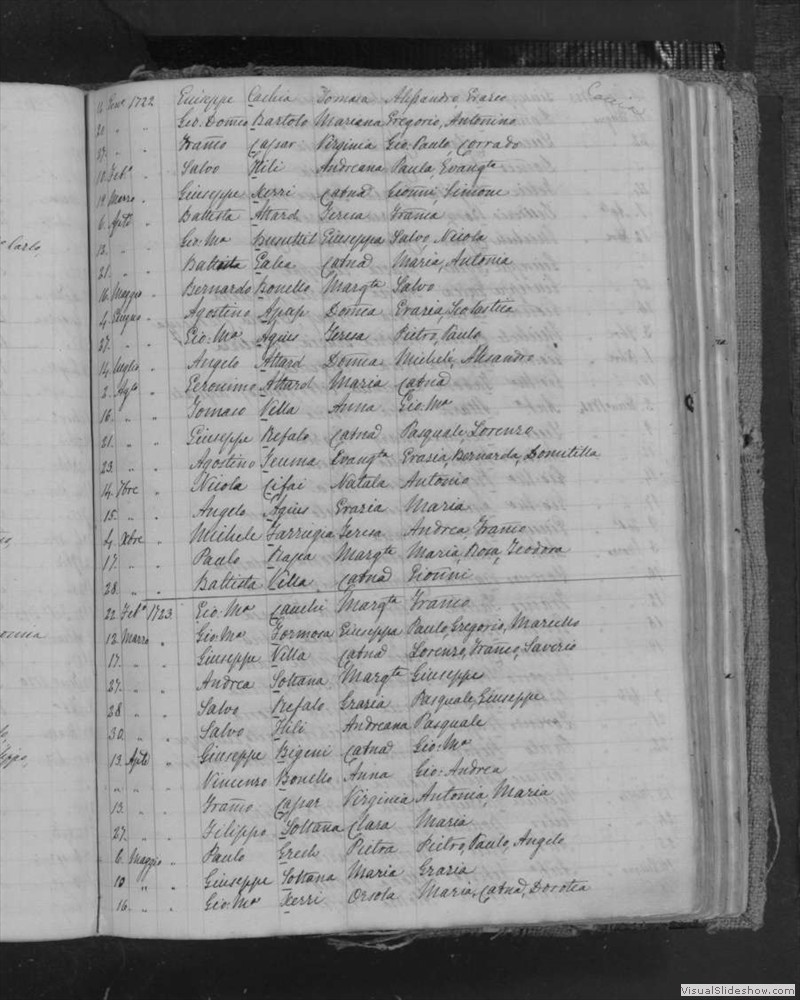 Carlo,
onna
12 Genº 1722 Giuseppe Cachia Tomasa Alessandro, Grasio
20 " " Gio. Domco Bartolo Mariana Gregorio, Antonino
27. " " Franco Caspar Virginia Gio: Paulo, Corrado
10 Febº " Salvo Hili Andreana Paula, Evangta
19 Marzo " Giuseppe Xerri Catnā Gionni, Simone
6 Aple " Battista Attard Teresa Franca
13. " " Gio: Mª Busuttil Giuseppa Salvo, Nicola
21. " " Battista Galea Catnā Maria, Antonia
16 Maggio " Bernardo Bonello Margta Salvo
4 Giugno " Agostino Apap Domca Grazia, Scolastica
27. " " Gio: Mª Agius Teresa Pietro, Paulo
14 Luglio " Angelo Attard Domca Michele, Alesandro
2 Agto " Geronimo Attard Maria Catnā
16. " " Tomaso Vella Anna Gio: Mª
21. " " Giuseppe Refalo Catnā Pasquale, Lorenzo
23 " " Agostino Teuma Evangta Grasia, Bernarda, Donutilla
14. 9bre " Nicola Cifai Natala Antonio
15. " " Angelo Agius Grazia Maria
4 Xbre " Michele Farrugia Teresa Andrea, Franco
17. " " Paulo Rapa Margta Maria, Rosa, Teodora
28. " " Battista Vella Catnā Gionni
22 Febº 1723 Gio: Mª Cauchi Margta Franco
12 Marzo " Gio: Mª Formosa Giuseppa Paulo, Gregorio, Marcello
17. " " Giuseppe Villa Catnā Lorenzo, Franco, Saverio
27. " " Andrea Soltana Margta Giuseppe
28 " " Salvo Refalo Grazia Pasquale, Giuseppe
30 " " Salvo Hili Andreana Pasquale
13. Aple " Giuseppe Bigeni Catnā Gio: Mª
" " " Vincenzo Bonello Anna Gio: Andrea
13. " " Franco Caspar Virginia Antonia, Maria
27. " " Filippo Soltana Clara Maria
6 Maggio " Paulo Grech Pietra Pietro, Paulo, Angelo
10 " " Giuseppe Soltana Maria Grazia
16. " " Gio: Mª Xerri Orsola Maria, Catnā, Dorotea
VisualSlideshow.com